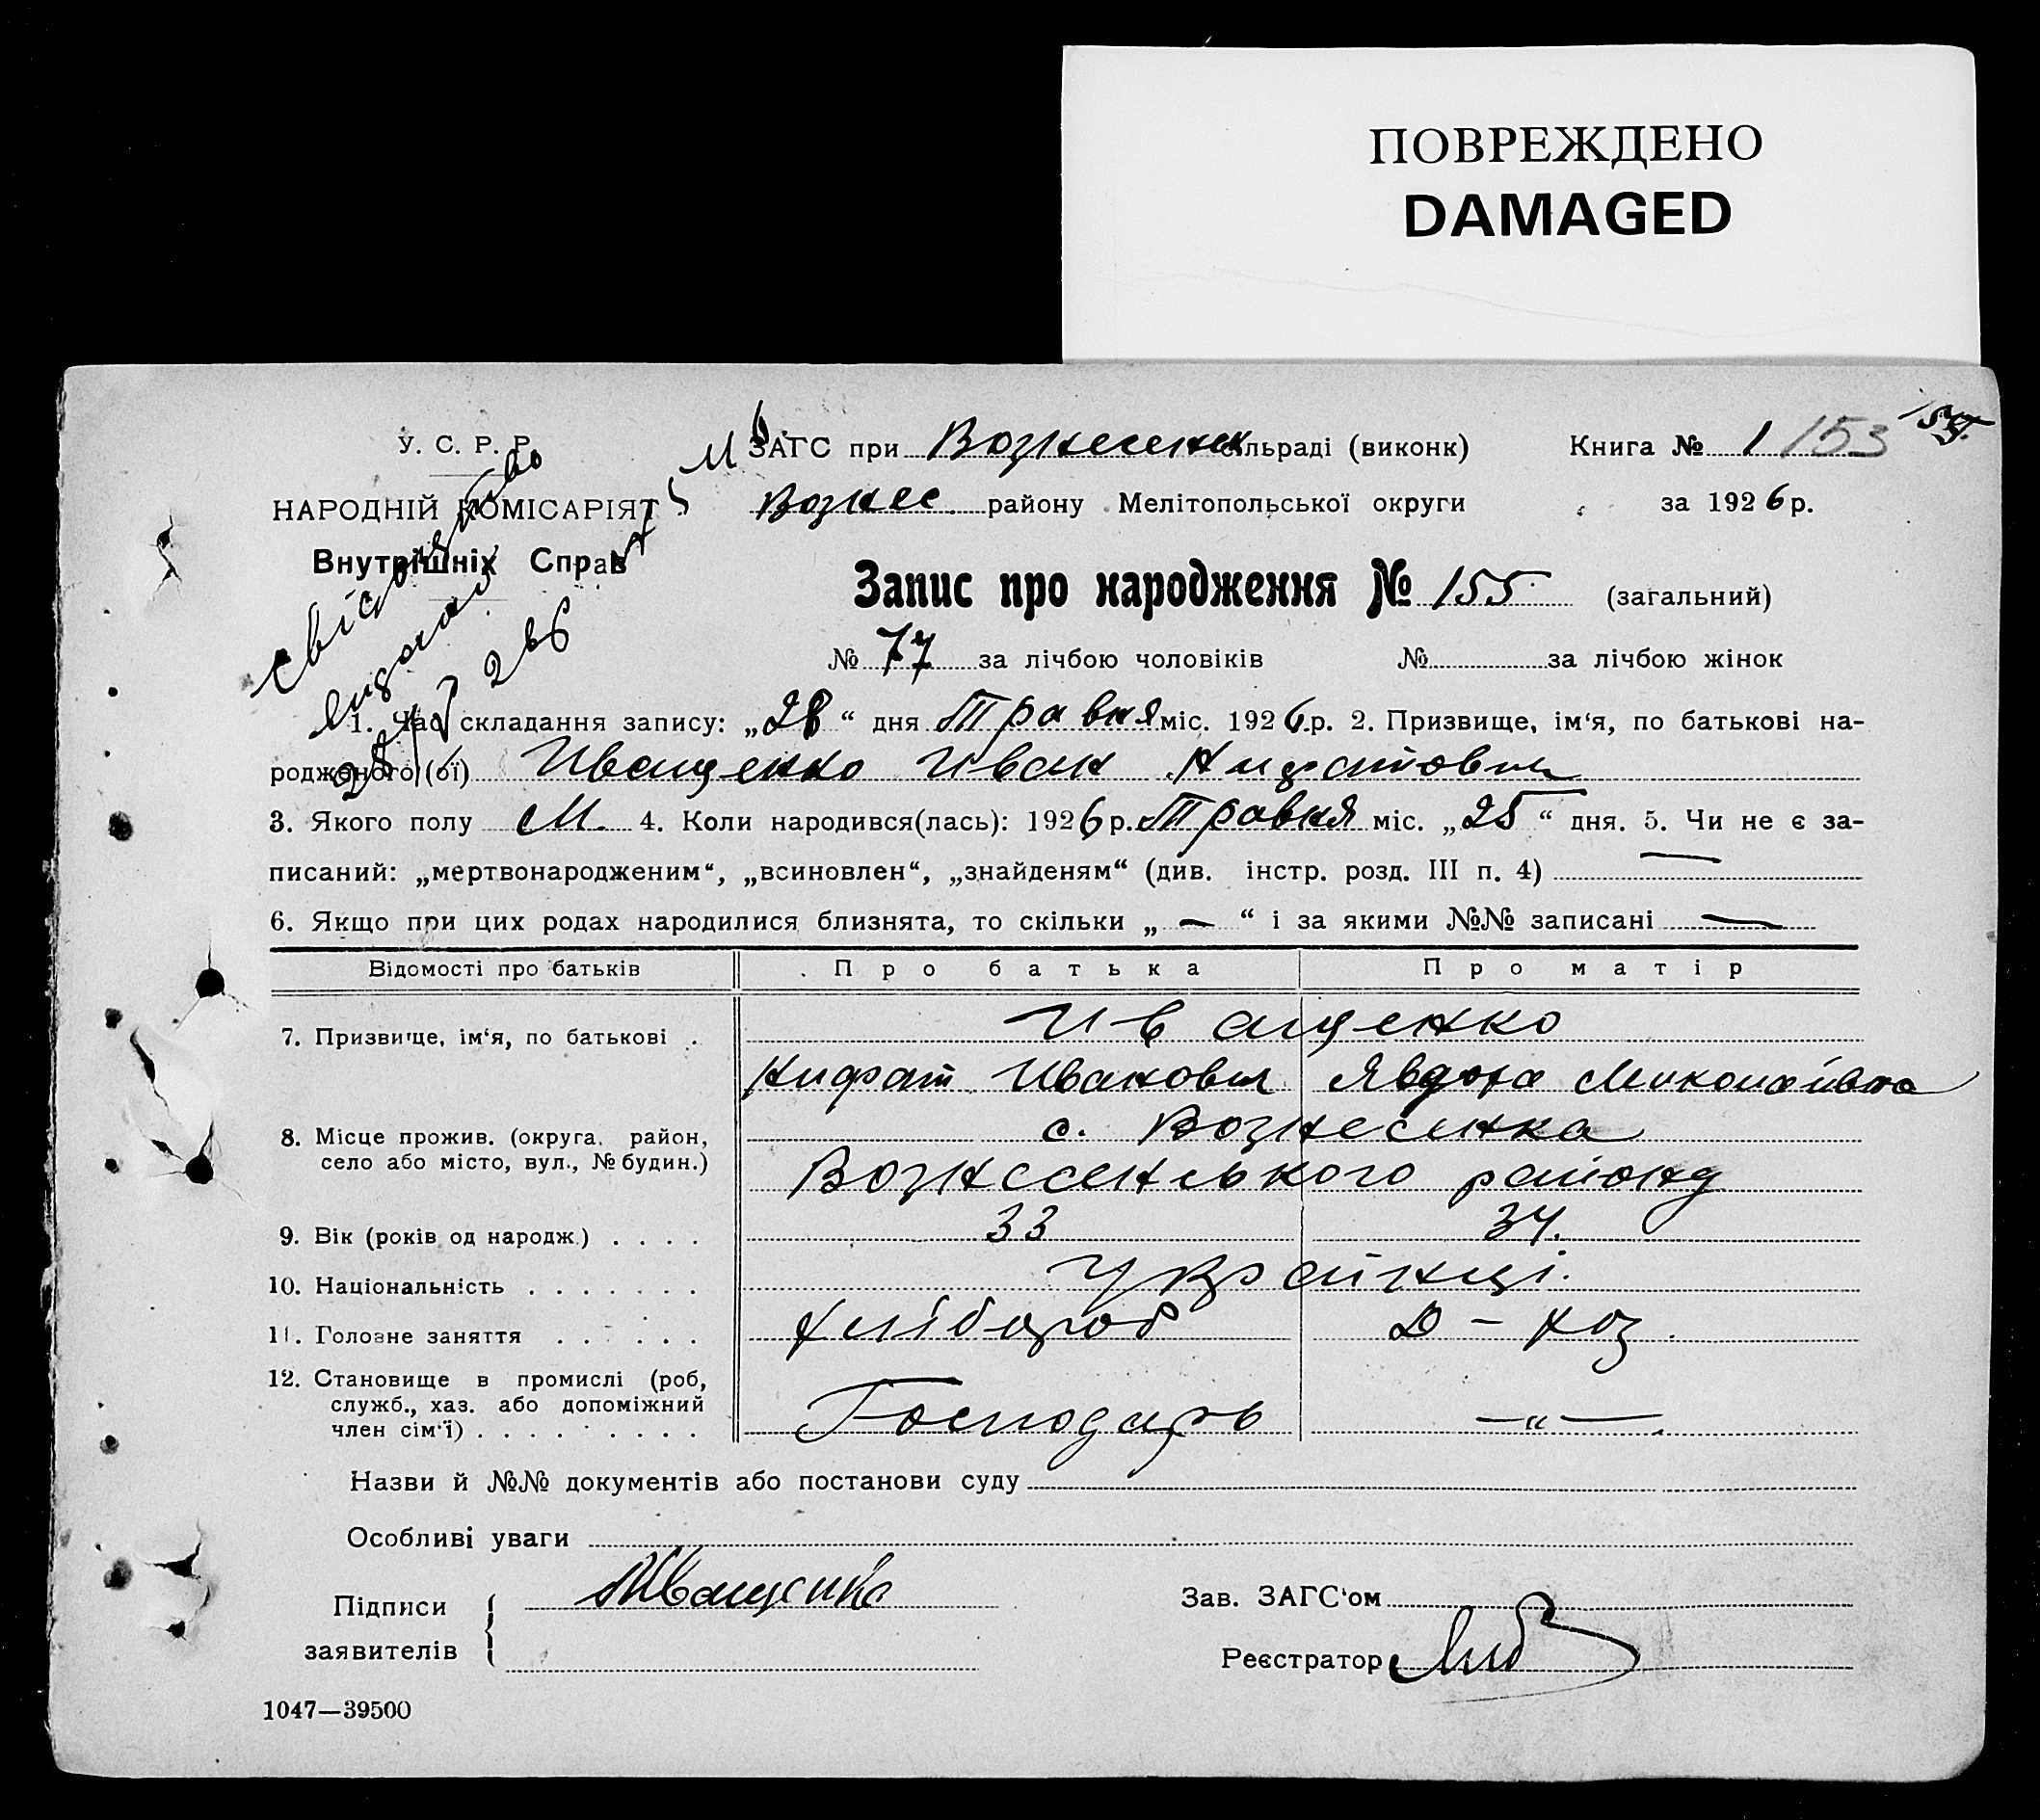 ПОВРЕЖДЕНО
DAMAGED
У. С. Р. Р.
НАРОДНІЙ КОМІСАРІЯТ
Внутрішніх Справ
ЗАГС при Вознесенк сільраді (виконк)
Книга № 1 153
Вознес району Мелітопольської округи
за 1926 р.
Запис про народження № 155 (загальний)
№ 77 за лічбою чоловіків № за лічбою жінок
Свідоцтво
видано
1. Час складання запису: „28“ дня Травня міс. 1926 р. 2. Призвище, ім‘я, по батькові на-
родженого (ої) Иващенко Иван
3. Якого полу М. 4. Коли народився(лась): 1926 р. Травня міс. „25“ дня. 5. Чи не є за-
писаний: „мертвонародженим“, „всиновлен“, „знайденям“ (див. інстр. розд. III п. 4) —
6. Якщо при цих родах народилися близнята, то скільки „ — “ і за якими №№ записані —
Відомості про батьків
Про батька
Про матір
7. Призвище, ім‘я, по батькові .
Иващенко
Иванович Явдоха Миколаївна
8. Місце прожив. (округа, район,
село або місто, вул., № будин.)
с. Вознесенка
Вознесенського району
9. Вік (років од народж.) . . . .
33 34.
10. Національність . . . . . . .
Українці.
11. Головне заняття . . . . . .
Хлібороб Д – хоз.
12. Становище в промислі (роб,
служб., хаз. або допоміжний
член сім‘ї) . . . . . . . . .
Господарь —„—.
Назви й №№ документів або постанови суду
Особливі уваги
Підписи
заявителів
Иващенко
Зав. ЗАГС‘ом
Реєстратор
1047—39500